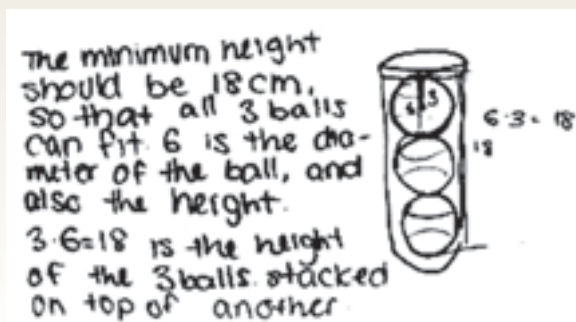 The minimum height
should be 18cm,
so that all 3 balls
can fit. 6 is the dia-
meter of the ball, and
also the height.
3·6=18 is the height
of the 3 balls stacked
on top of another
3
6·3=18
18